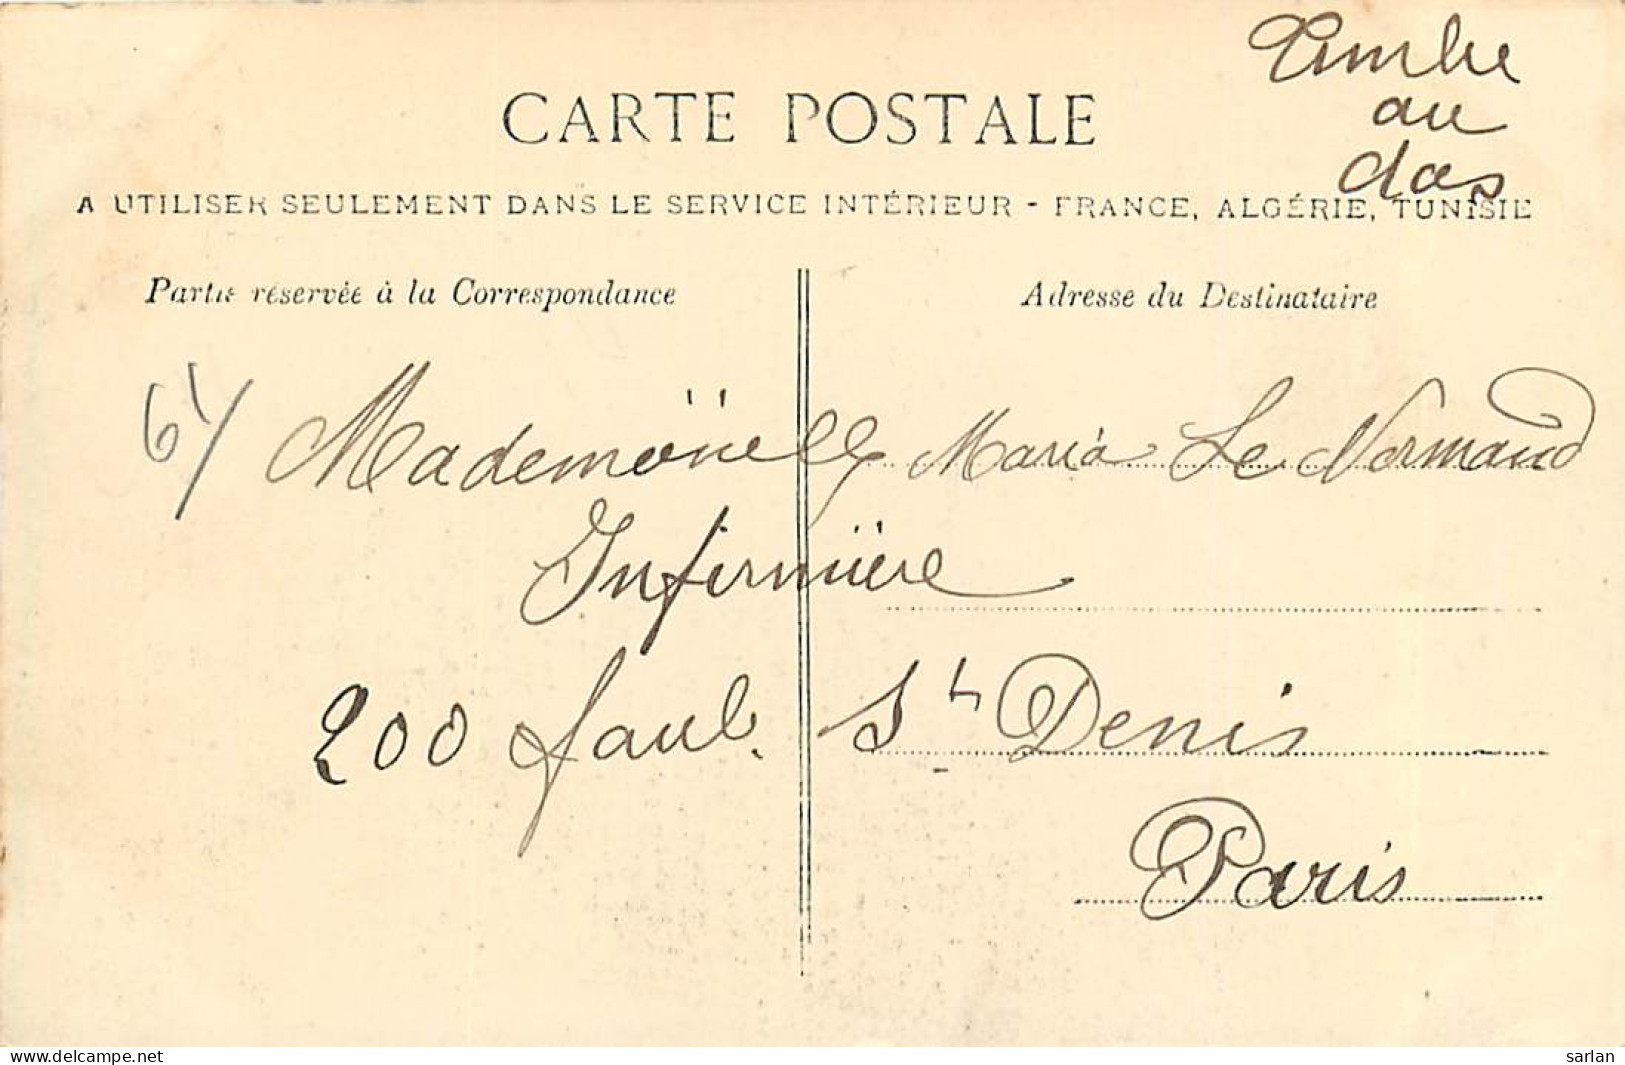 Timbre
au
dos
CARTE POSTALE
A UTILISER SEULEMENT DANS LE SERVICE INTÉRIEUR - FRANCE, ALGÉRIE, TUNISIE
Partie réservée à la Correspondance
Adresse du Destinataire
64
Mademoiselle Maria Le Normand
Infirmière
200 faub. St Denis
Paris
www.delcampe.net
sarlan